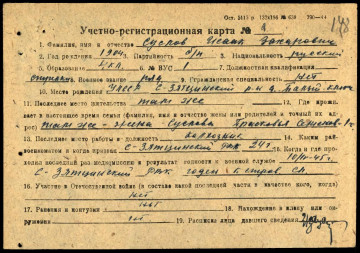 Учетно-регистрационная карта № 1
1. Фамилия, имя и отчество Суслов Исаак Захарович
2. Год рождения 1904г. Партийность б/п 3. Национальность русский
4. Образование 4 кл. 5. № ВУС 1 7. Должностная квалификация
8. Военное звание ряд 9. Гражданская специальность нет
10. Место рождения УАССР С-Зятцинский р-н д. Малый ключ
11. Последнее место жительства там же 12. Где проживает
в настоящее время семья (фамилия, имя и отчество жены или родителей и точный их адрес)
там же - жена Суслова
13. Последнее место работы и должность колхозник 14. Каким райвоенкоматом
и когда призван С-Зятцинский РВК 24г. 15. Когда и где проходил
последний раз медкомиссию и результат (отношение к военной службе)
С-Зятцинский РВК годен к строев сл.
16. Участие в Отечественной войне (в составе какой последней части и качестве кого, когда)
нет
17. Ранения и контузии нет 18. Нахождение в плену или
окружении нет 19. Расписка лица давшего сведения